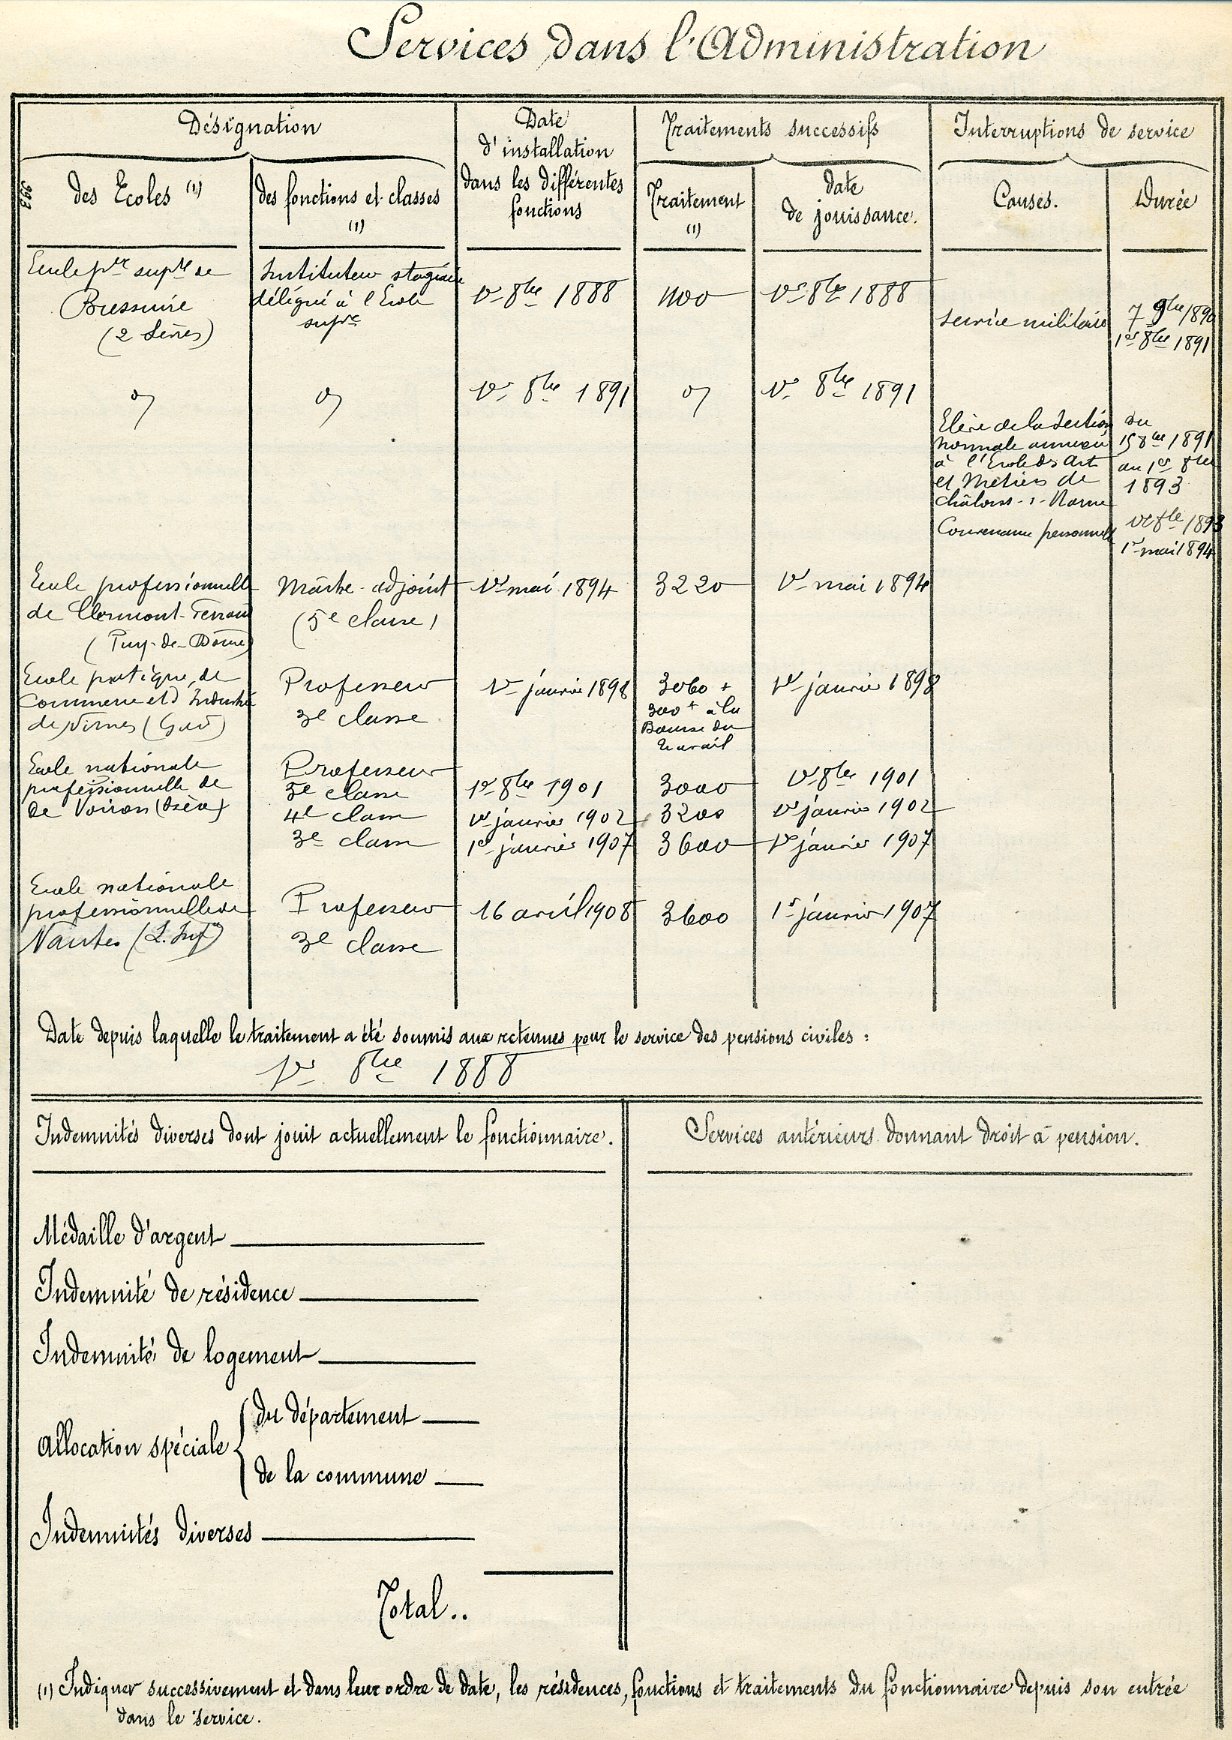 Services dans l'Administration
Désignation
des Ecoles (1)
des fonctions et classes
(1)
Date
d'installation
dans les différentes
fonctions
Traitements successifs
Traitement
(1)
Date
de jouissance.
Interruptions de service
Causes.
Durée
Ecole pre supre de
Bressuire
(2 Sèvres)
Instituteur stagiaire
délégué à l'Ecole
supre
1er 8bre 1888
1100
1er 8bre 1888
Service militaire
7 9bre 1890
1er 8bre 1891
d
d
1er 8bre 1891
d
1er 8bre 1891
Elève de la Section
normale annexée
à l'Ecole des Arts
et Métiers de
Châlons-s-Marne
du
15 8bre 1891
au 1er 8bre
1893
Convenance personnelle
1er 8bre 1893
1er mai 1894
Ecole professionnelle
de Clermont-Ferrand
(Puy-de-Dôme)
Maître-adjoint
(5e classe)
1er mai 1894
3220
1er mai 1894
Ecole pratique de
Commerce et d'Industrie
de Nîmes (Gard)
Professeur
3e classe
1er janvier 1898
3060 +
300 f à la
Bourse du
travail
1er janvier 1898
Ecole nationale
professionnelle de
de Voiron (Isère)
Professeur
5e classe
4e classe
3e classe
1er 8bre 1901
1er janvier 1902
1er janvier 1907
3000
3200
3600
1er 8bre 1901
1er janvier 1902
1er janvier 1907
Ecole nationale
professionnelle de
Nantes (L. Infre)
Professeur
3e classe
16 avril 1908
3600
1er janvier 1907
Date depuis laquelle le traitement a été soumis aux retenues pour le service des pensions civiles :
1er 8bre 1888
Indemnités diverses dont jouit actuellement le fonctionnaire.
Services antérieurs donnant droit à pension.
Médaille d'argent
Indemnité de résidence
Indemnité de logement
Allocation spéciale
du département
de la commune
Indemnités diverses
Total..
(1) Indiquer successivement et dans leur ordre de date, les résidences, fonctions et traitements du fonctionnaire depuis son entrée
dans le service.